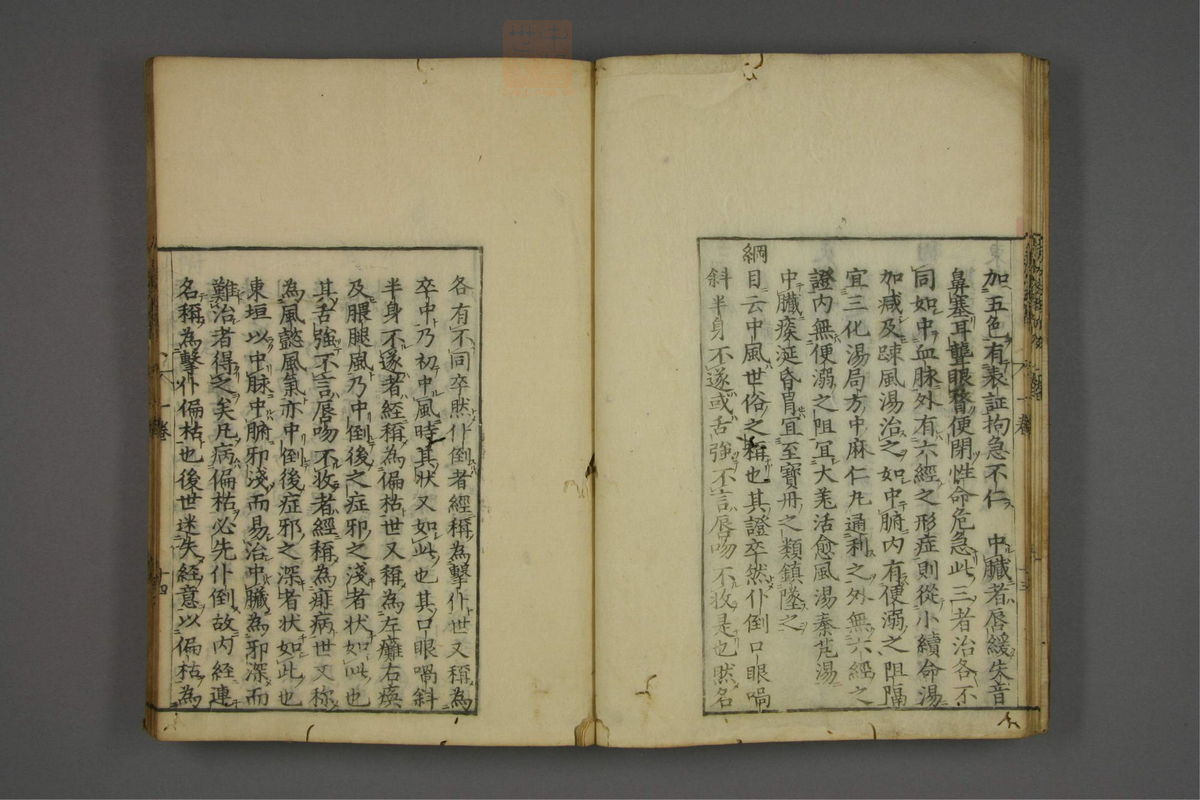 加五色有表証拘急不仁 中臓者唇緩失音
鼻塞耳聾眼瞀便閉性命危急此三者治各不
同如中血脉外有六經之形症則從小續命湯
加减及踈風湯治之如中腑内有便溺之阻隔
宜三化湯局方中麻仁丸通利之外無六經之
證内無便溺之阻宜大羌活愈風湯秦芃湯
中臓痰涎昏冐宜至寳丹之類鎮墜之
綱目云中風世俗之稱也其證卒然仆倒口眼喎
斜半身不遂或舌強不言唇吻不收是也然名
各有不同卒然仆倒者經稱為擊仆世又稱為
卒中乃初中風時其状又如此也其口眼喎斜
半身不遂者經稱為偏枯世又稱為左癱右瘓
及腲腿風乃中倒後之症邪之淺者状如此也
其舌強不言唇吻不收者經稱為痱病世又称
為風懿風氣亦中倒後症邪之深者状如此也
東垣以中脉中腑邪淺而易治中臓為邪深而
難治者得之矣凡病偏枯必先仆倒故内経連
名稱為擊仆偏枯也後世迷失経意以偏枯為
一卷
十三
一卷
十四